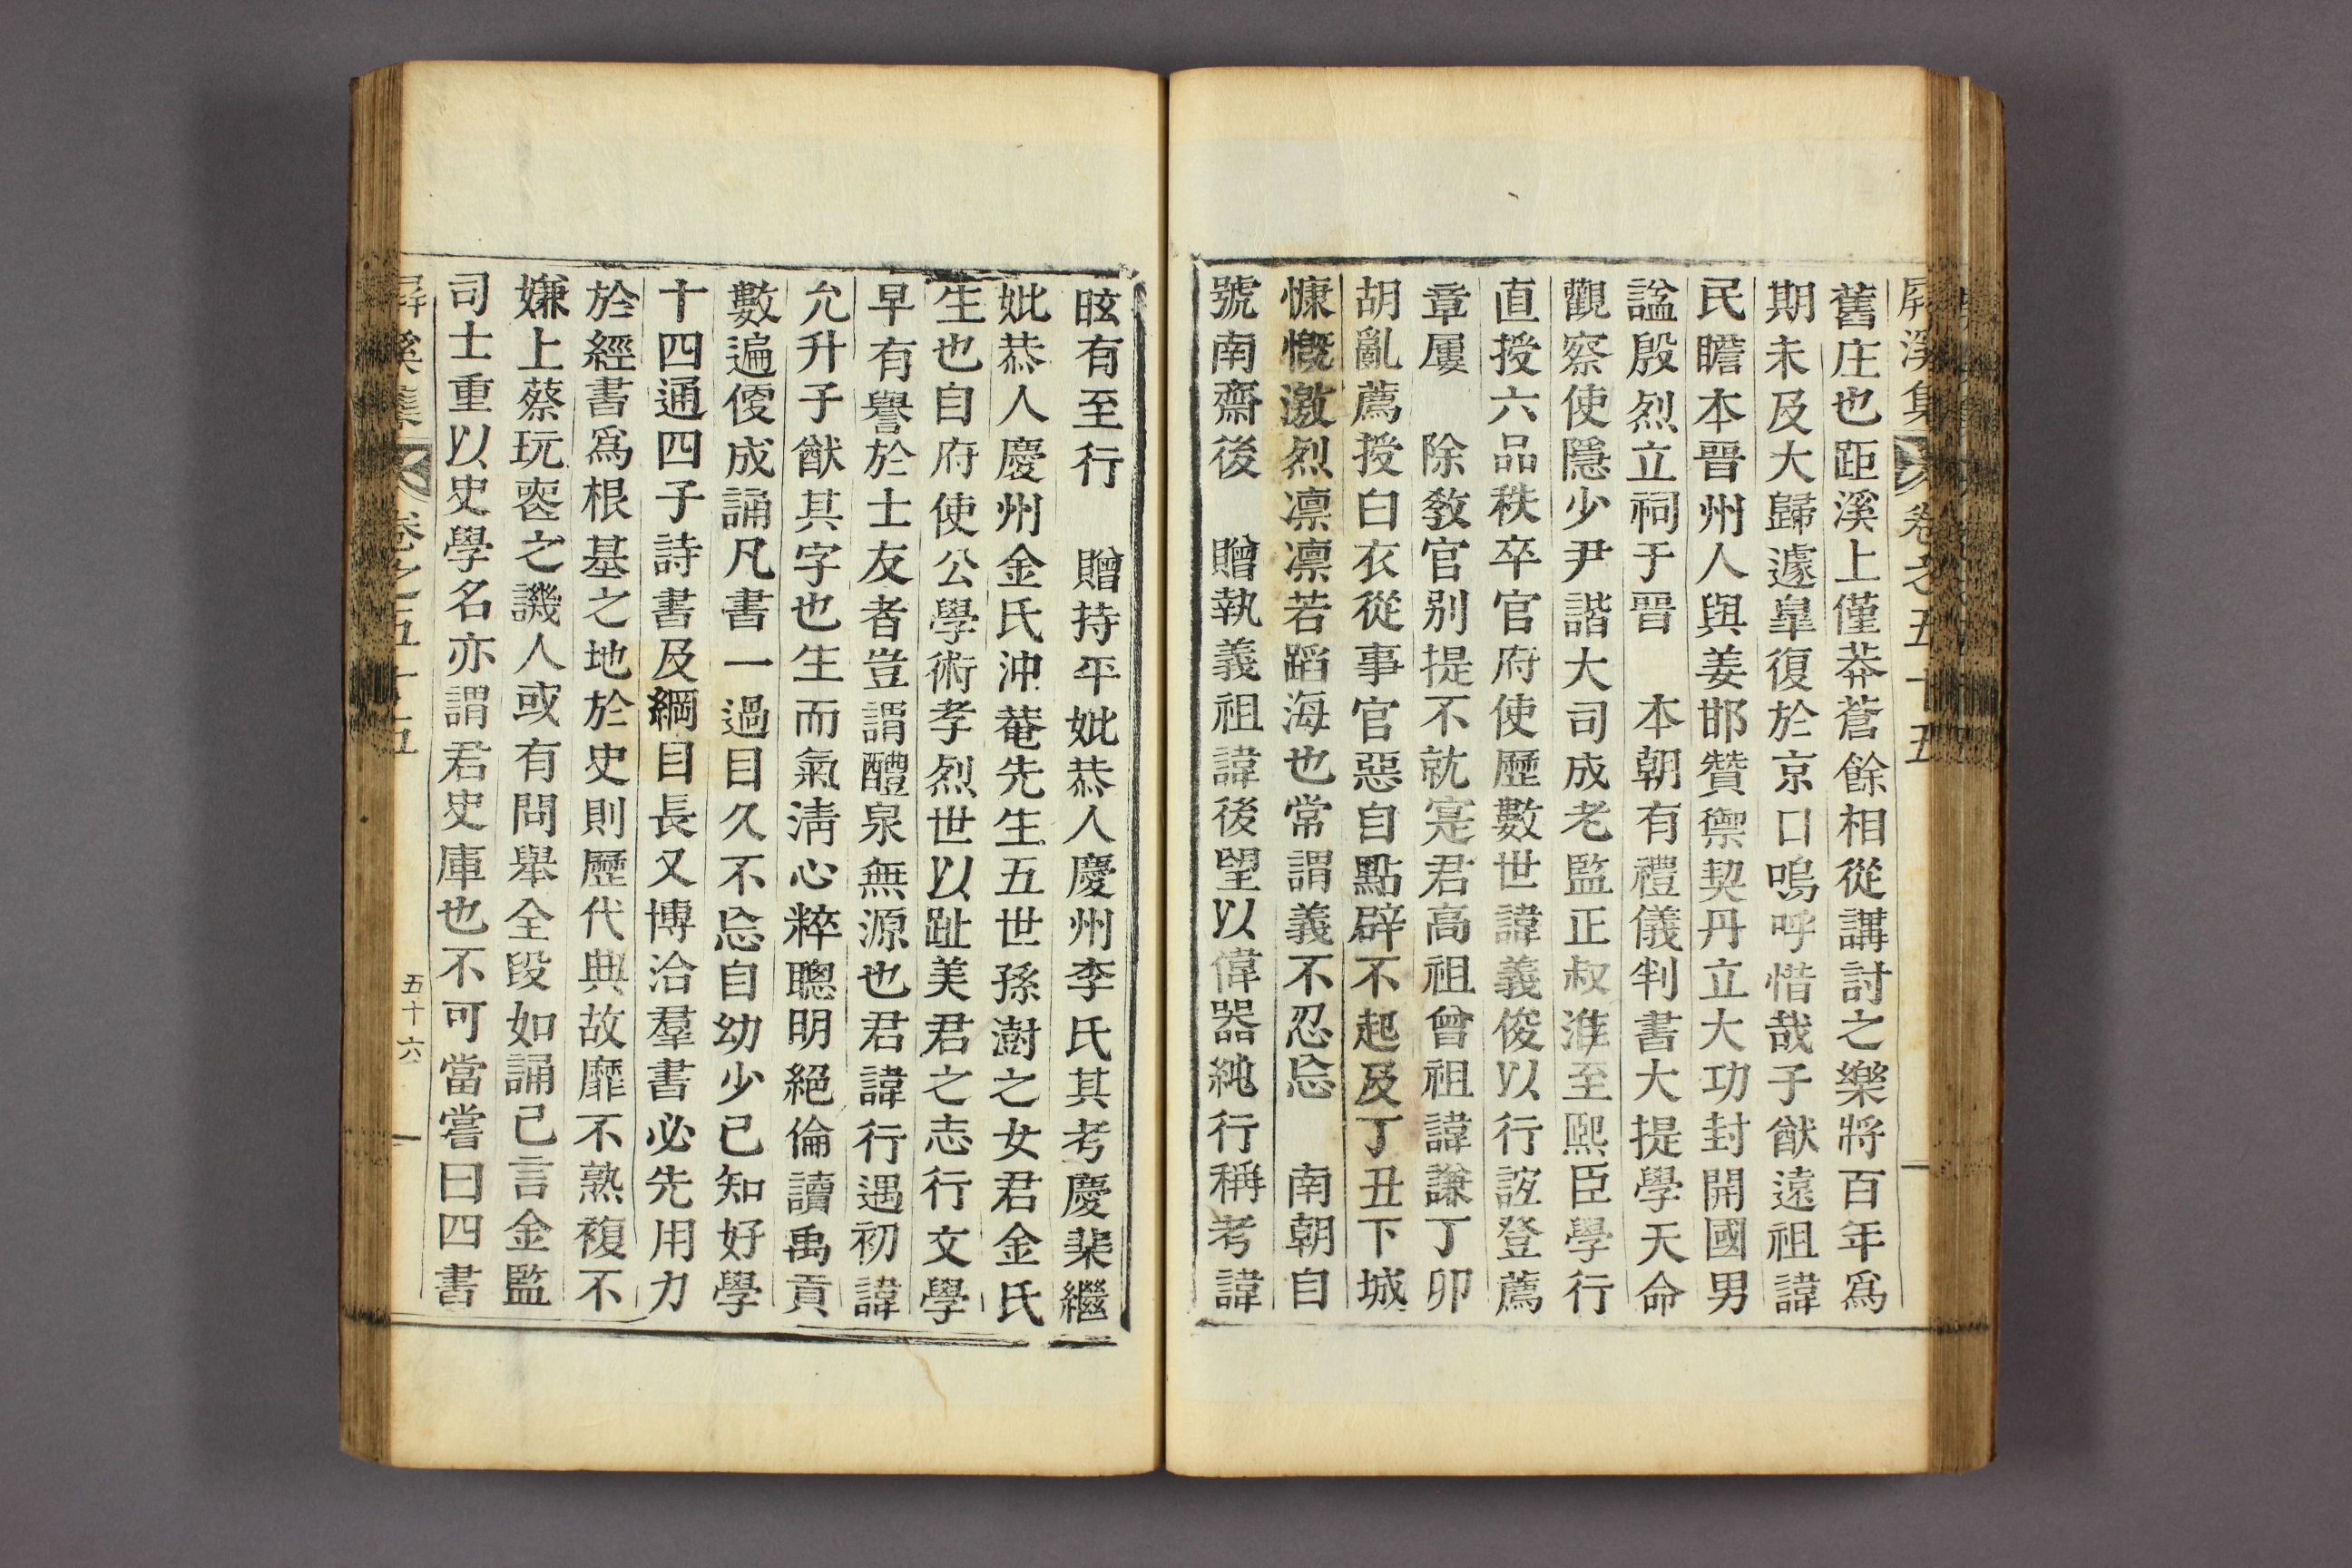 屛溪集 卷之五十五
舊庄也距溪上僅莽蒼餘相從講討之樂將百年爲
期未及大歸遽臯復於京口嗚呼惜哉子猷遠祖諱
民瞻本晋州人與姜邯贊禦契丹立大功封開國男
謚殷烈立祠于晋 本朝有禮儀判書大提學天命
觀察使隱少尹諧大司成老監正叔淮至熙臣學行
直授六品秩卒官府使歷數世諱義俊以行誼登薦
章屢 除敎官別提不就寔君高祖曾祖諱謙丁卯
胡亂薦授白衣從事官惡自點辟不起及丁丑下城
慷慨激烈凛凛若蹈海也常謂義不忍忘 南朝自
號南齋後 贈執義祖諱後望以偉器純行稱考諱
昡有至行 贈持平妣恭人慶州李氏其考慶菜繼
妣恭人慶州金氏沖菴先生五世孫澍之女君金氏
生也自府使公學術孝烈世以趾美君之志行文學
早有譽於士友者豈謂醴泉無源也君諱行遇初諱
允升子猷其字也生而氣淸心粹聰明絕倫讀禹貢
數遍便成誦凡書一過目久不忘自幼少已知好學
十四通四子詩書及綱目長又博洽羣書必先用力
於經書爲根基之地於史則歷代典故靡不熟複不
嫌上蔡玩喪之譏人或有問舉全段如誦己言金監
司士重以史學名亦謂君史庫也不可當嘗曰四書
屛溪集 卷之五十五 五十六